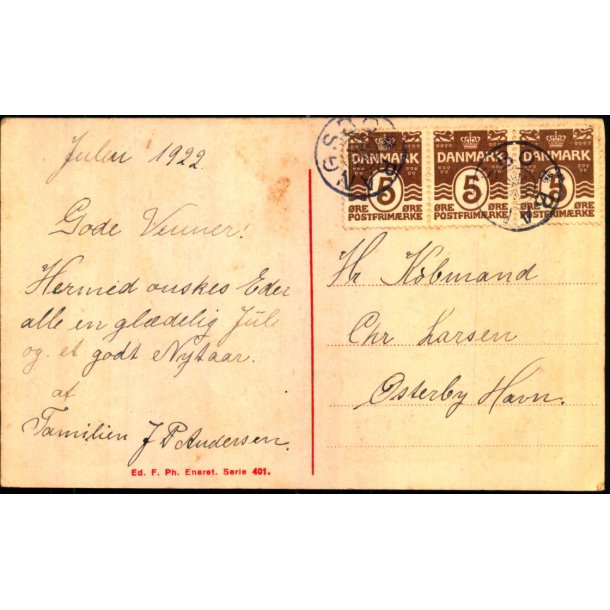 Julen 1922
Gode Venner!
Hermed ønskes Eder
alle en glædelig Jul
og et godt Nytaar.
af
Familien J P Andersen.
Ed. F. Ph. Eneret. Serie 401.
DANMARK
5
ØRE
POSTFRIMÆRKE
DANMARK
5
ØRE
POSTFRIMÆRKE
DANMARK
5
ØRE
POSTFRIMÆRKE
Hr Købmand
Chr Larsen
Østerby Havn.